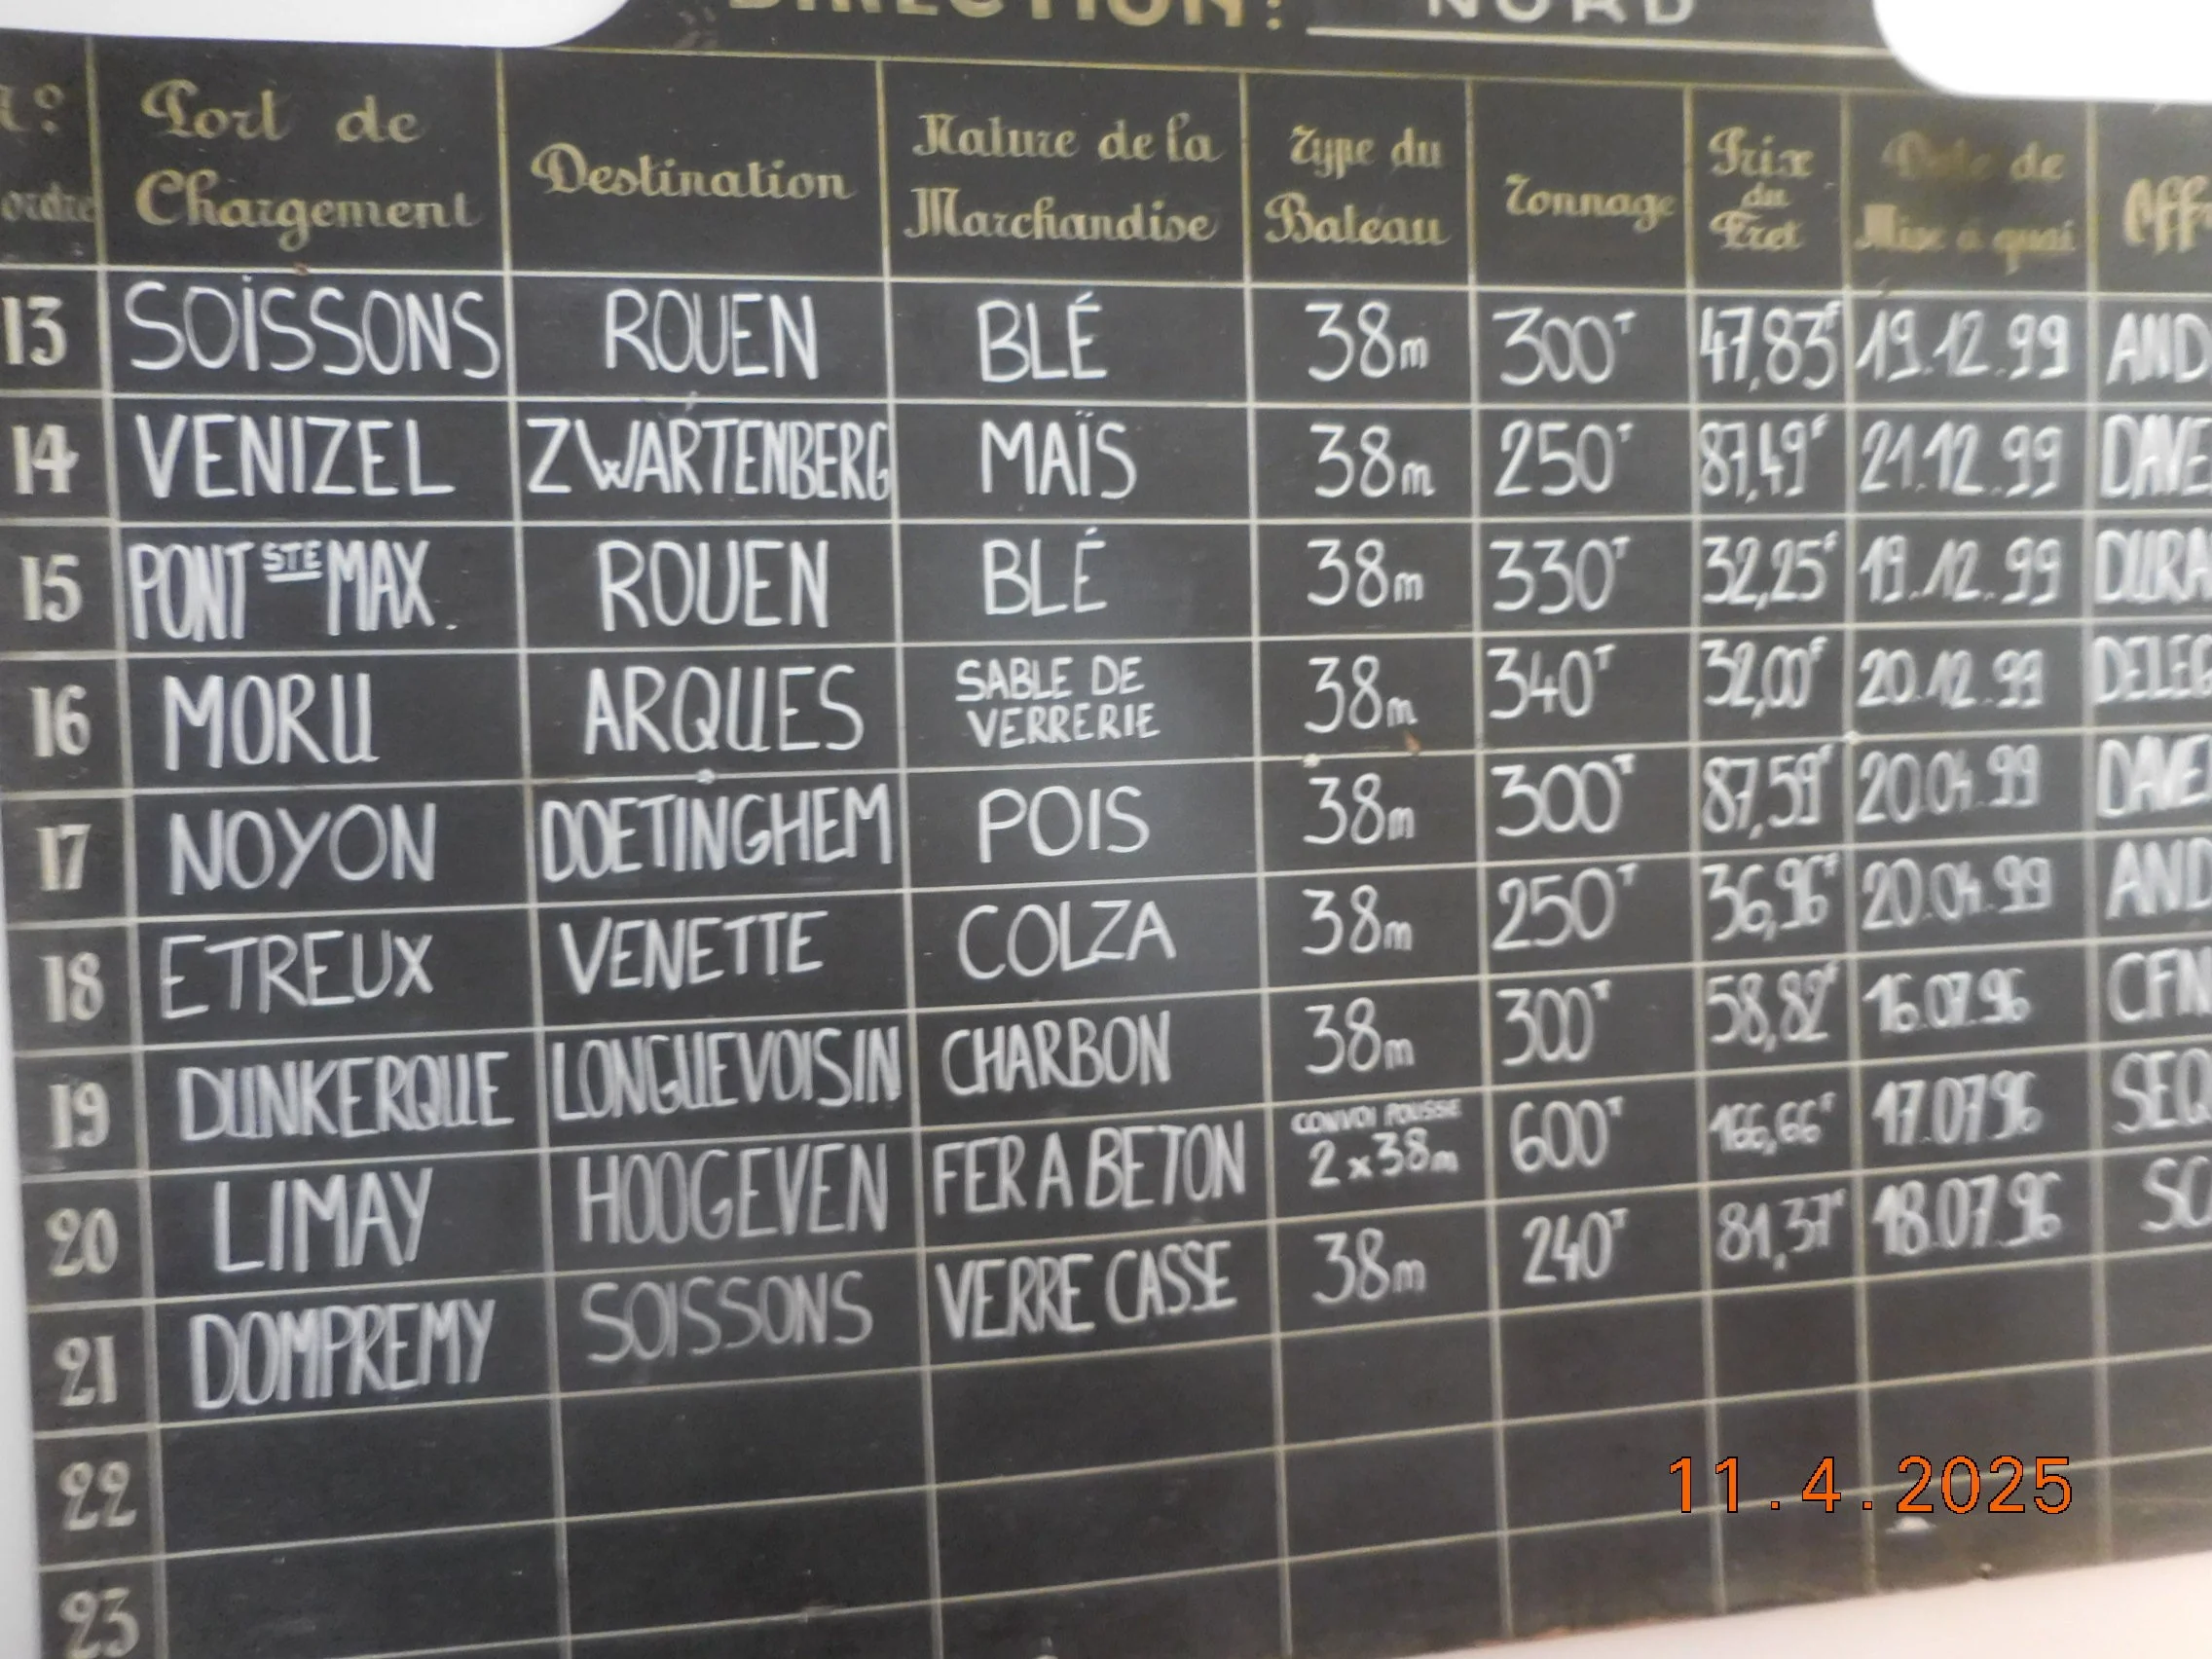 DIRECTION: NORD
N° ordre Port de Chargement Destination Nature de la Marchandise Type du Bateau Tonnage Prix du Fret Date de Mise à quai Aff
13 SOISSONS ROUEN BLÉ 38m 300T 47,83F 19.12.99 AND
14 VENIZEL ZWARTENBERG MAÏS 38m 250T 87,49F 21.12.99 DAVE
15 PONT STE MAX. ROUEN BLÉ 38m 330T 32,25F 19.12.99 DURA
16 MORU ARQUES SABLE DE VERRERIE 38m 340T 32,00F 20.12.99 DELEG
17 NOYON DOETINGHEM POIS 38m 300T 87,59F 20.04.99 DAVE
18 ETREUX VENETTE COLZA 38m 250T 36,96F 20.04.99 AND
19 DUNKERQUE LONGUEVOISIN CHARBON 38m 300T 58,82F 16.07.96 CFN
20 LIMAY HOOGEVEN FER A BETON CONVOI POUSSE 2x38m 600T 166,66F 17.07.96 SEQ
21 DOMPREMY SOISSONS VERRE CASSE 38m 240T 81,37F 18.07.96 SO
22
23
11.4.2025